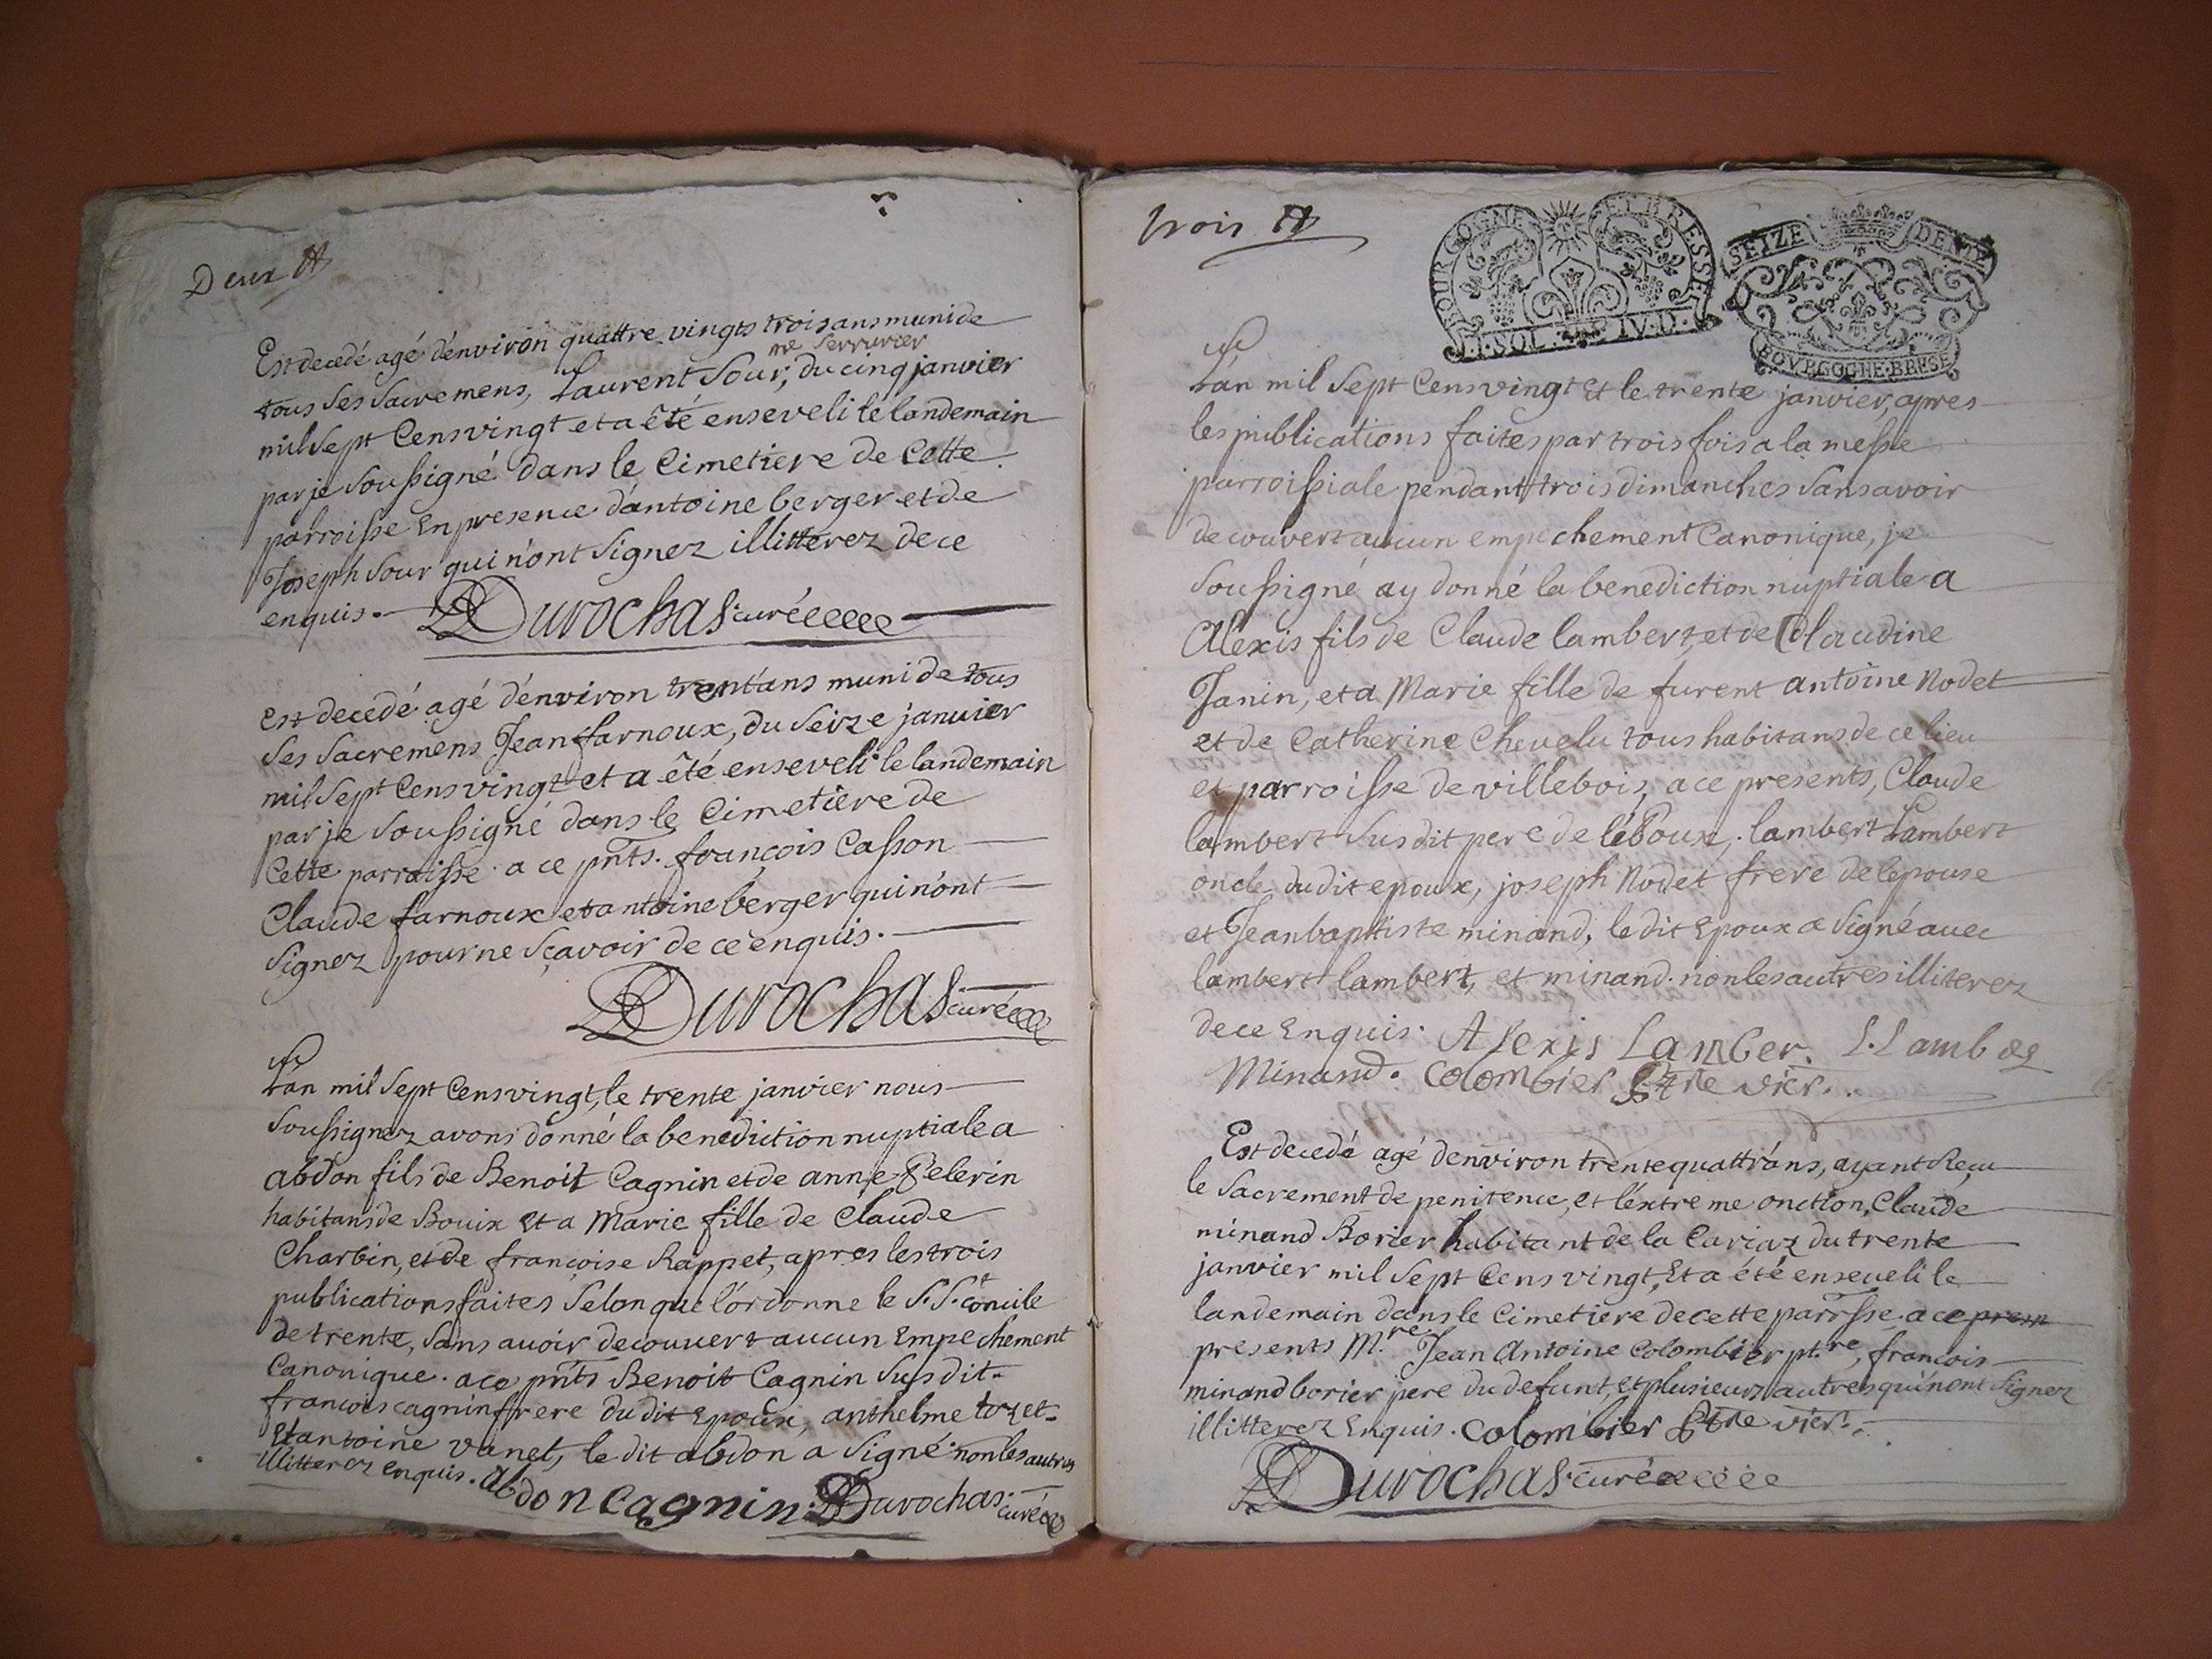 Deux
Est decedé agé d'environ quattre vingts trois ans muni de
me serrurier
tous ses sacremens, Laurent Sour, du cinq janvier
mil sept cens vingt et a êté enseveli le landemain
par je soussigné dans le cimetiere de cette
parroisse en presence d'antoine berger et de
Joseph Sour qui n'ont signez illitterez de ce
enquis. Durochas curé
est decedé agé d'environ trent'ans muni de tous
ses sacremens Jean farnoux, du seize janvier
mil sept cens vingt et a êté enseveli le landemain
par je soussigné dans le cimetiere de
cette parroisse a ce pnts. françois Casson
Claude farnoux et antoine berger qui n'ont
signez pour ne sçavoir de ce enquis.
Durochas curé
L'an mil sept cens vingt, le trente janvier nous
soussignez avons donné la benediction nuptiale a
abdon fils de Benoit Cagnin et de anne Pelerin
habitans de Bouix et a Marie fille de Claude
Charbin, et de françoise Rappet, apres les trois
publications faites selon que l'ordonne le S.St concile
de trente, sans avoir decouvert aucun empechement
Canonique. a ce pnts Benoit Cagnin susdit
francois cagnin frere du dit epoux, anthelme
et antoine vanet, le dit abdon a signé non les autres
illitterez enquis. abdon cagnin. Durochas curé
trois
BOURGOGNE ET BRESSE
SOL IV.D.
SEIZE DENIE
BOVRGOGNE.BRESE
L'an mil sept cens vingt et le trente janvier, apres
les publications faites par trois fois a la messe
parroissiale pendant trois dimanches sans avoir
decouvert aucun empechement Canonique, je
soussigné ay donné la benediction nuptiale a
Alexis fils de Claude lambert, et de Claudine
Janin, et a Marie fille de furent antoine Nodet
et de Catherine Chevelu tous habitans de ce lieu
et parroisse de villebois, a ce presents, Claude
lambert susdit pere de l'epoux, lambert Lambert
oncle du dit epoux, joseph Nodet frere de l'epouse
et Jean baptiste minand, le dit epoux a signé avec
lambert lambert, et minand. non les autres illiterez
de ce enquis. Alexis Lamber. L. Lamber
Minand. Colombier ptre vier.
Est decedé agé d'environ trente quattr'ans, ayant Reçu
le sacrement de penitence, et l'extreme onction, Claude
minand Borier habitant de la Cariaz du trente
janvier mil sept cens vingt, et a été enseveli le
landemain dans le cimetiere de cette paroisse. a ce presn
presents M.re Jean Antoine Colombier pt.re, francois
minand borier pere du defunt, et plusieurs autres qui n'ont signez
illitterez enquis. Colombier ptre vier.
Durochas curé